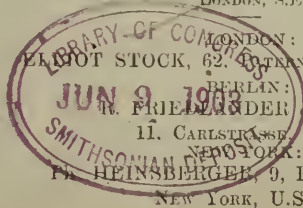 LONDON, S.E.
LONDON:
ELLIOT STOCK, 62,
BERLIN:
R. FRIEDLÄNDER
11. CARLSTRASSE.
NEW YORK:
PH. HEINSBERGER, 9,
NEW YORK, U.S.
LIBRARY OF CONGRESS
JUN 9 1903
SMITHSONIAN DEPOSIT